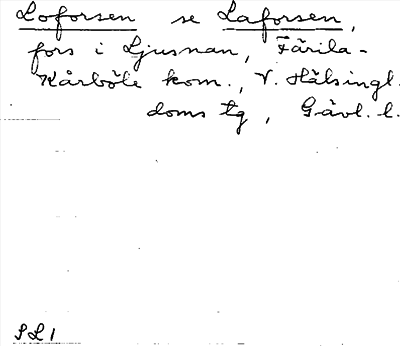 Loforsen se Laforsen,
fors i Ljusnan, Färila-
Kårböle kom., V. Hälsingl.
doms tg, Gävl. l.
SL1